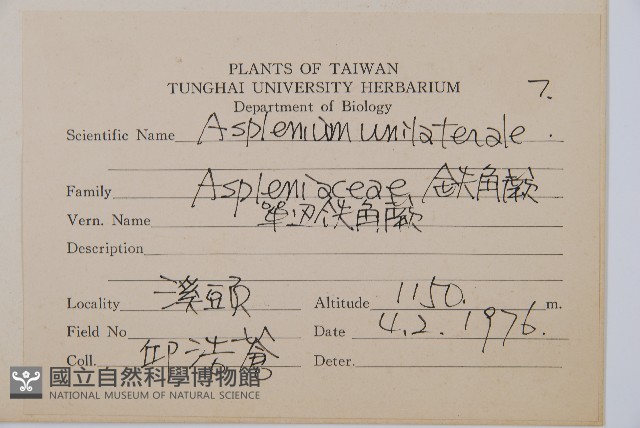 PLANTS OF TAIWAN
TUNGHAI UNIVERSITY HERBARIUM
7.
Department of Biology
Scientific Name Asplenium unilaterale.
Family Aspleniaceae 鉄角蕨
Vern. Name 單边鉄角蕨
Description
Locality 溪頭 Altitude 1150. m.
Field No Date 4.2.1976.
Coll. 邱浩 Deter.
國立自然科學博物館
NATIONAL MUSEUM OF NATURAL SCIENCE